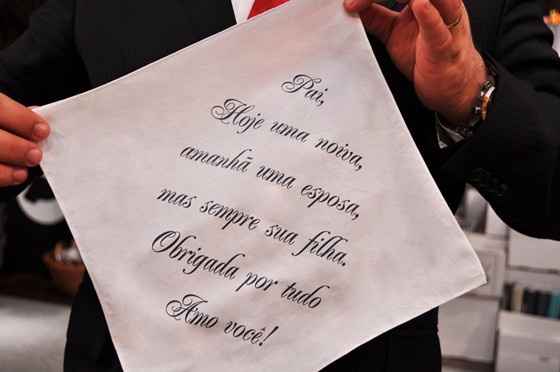 Pai,
Hoje uma noiva,
amanhã uma esposa,
mas sempre sua filha.
Obrigada por tudo
Amo você!